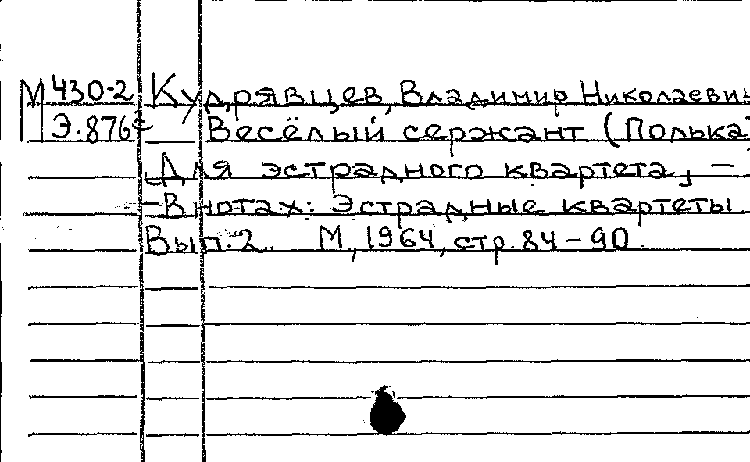 М 430-2 Кудрявцев, Владимир Николаевич
Э.876 Весёлый сержант (Полька)
Для эстрадного квартета, –
– В нотах: Эстрадные квартеты
Вып. 2. М., 1964, стр. 84 – 90.